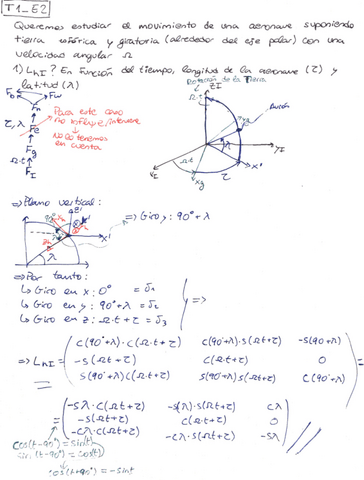 T1_E2
Queremos estudiar el movimiento de una aeronave suponiendo
tierra esférica y giratoria (alrededor del eje polar) con una
velocidad angular Ω
1) LhI? En función del tiempo, longitud de la aeronave (τ) y
latitud (λ)
Rotación de la Tierra
Fb Fw
Fh
τ, λ
Fe
Ω·t
Fg
FI
Para este caso
no influye/interviene
→
No lo tenemos
en cuenta
zI
Avión
λ
x'
yI
Ω·t
τ
xg
xI
⇒ Plano vertical:
z'
x'
λ
⇒ Giro y: 90°+λ
⇒ Por tanto:
↳ Giro en x: 0° = δ1
↳ Giro en y: 90°+λ = δ2
↳ Giro en z: Ω·t+τ = δ3
⇒
⇒ LhI = ( C(90°+λ)·C(Ω·t+τ) C(90°+λ)·S(Ω·t+τ) -S(90°+λ)
-S(Ω·t+τ) C(Ω·t+τ) 0
S(90°+λ)C(Ω·t+τ) S(90°+λ)S(Ω·t+τ) C(90°+λ) ) =
= ( -Sλ·C(Ωt+τ) -S(λ)·S(Ωt+τ) -Cλ
-S(Ωt+τ) C(Ωt+τ) 0
-Cλ·C(Ωt+τ) -Cλ·S(Ωt+τ) -Sλ )
cos(t-90°)=sin(t)
sin(t-90°)=cos(t)
cos(t+90°)=-sint